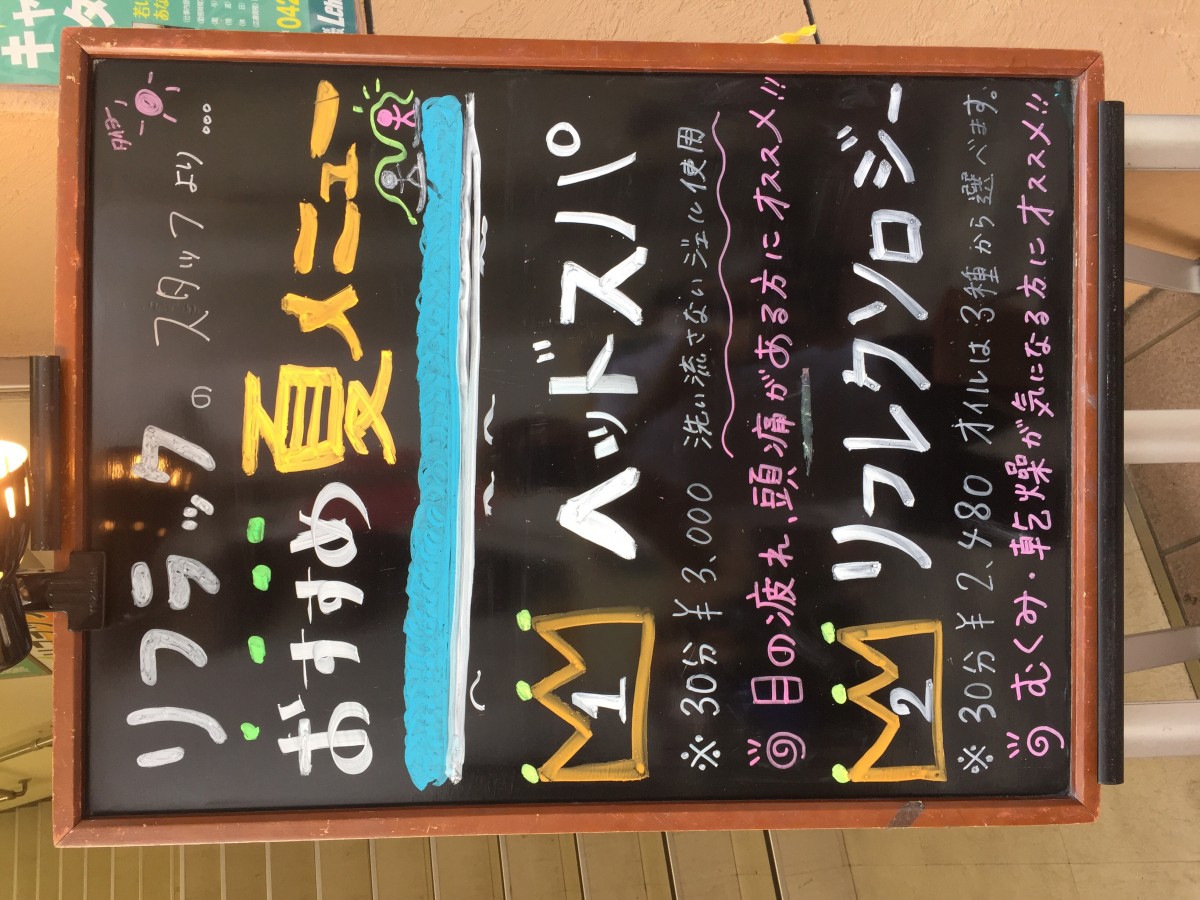 リフラックのスタッフより…
おすすめ夏メニュー
1 ヘッドスパ
※30分¥3,000 洗い流さないジェル使用
目の疲れ、頭痛がある方にオススメ!!
2 リフレクソロジー
※30分¥2,480 オイルは3種から選べます。
むくみ・乾燥が気になる方にオススメ!!